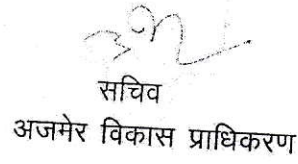 सचिव
अजमेर विकास प्राधिकरण